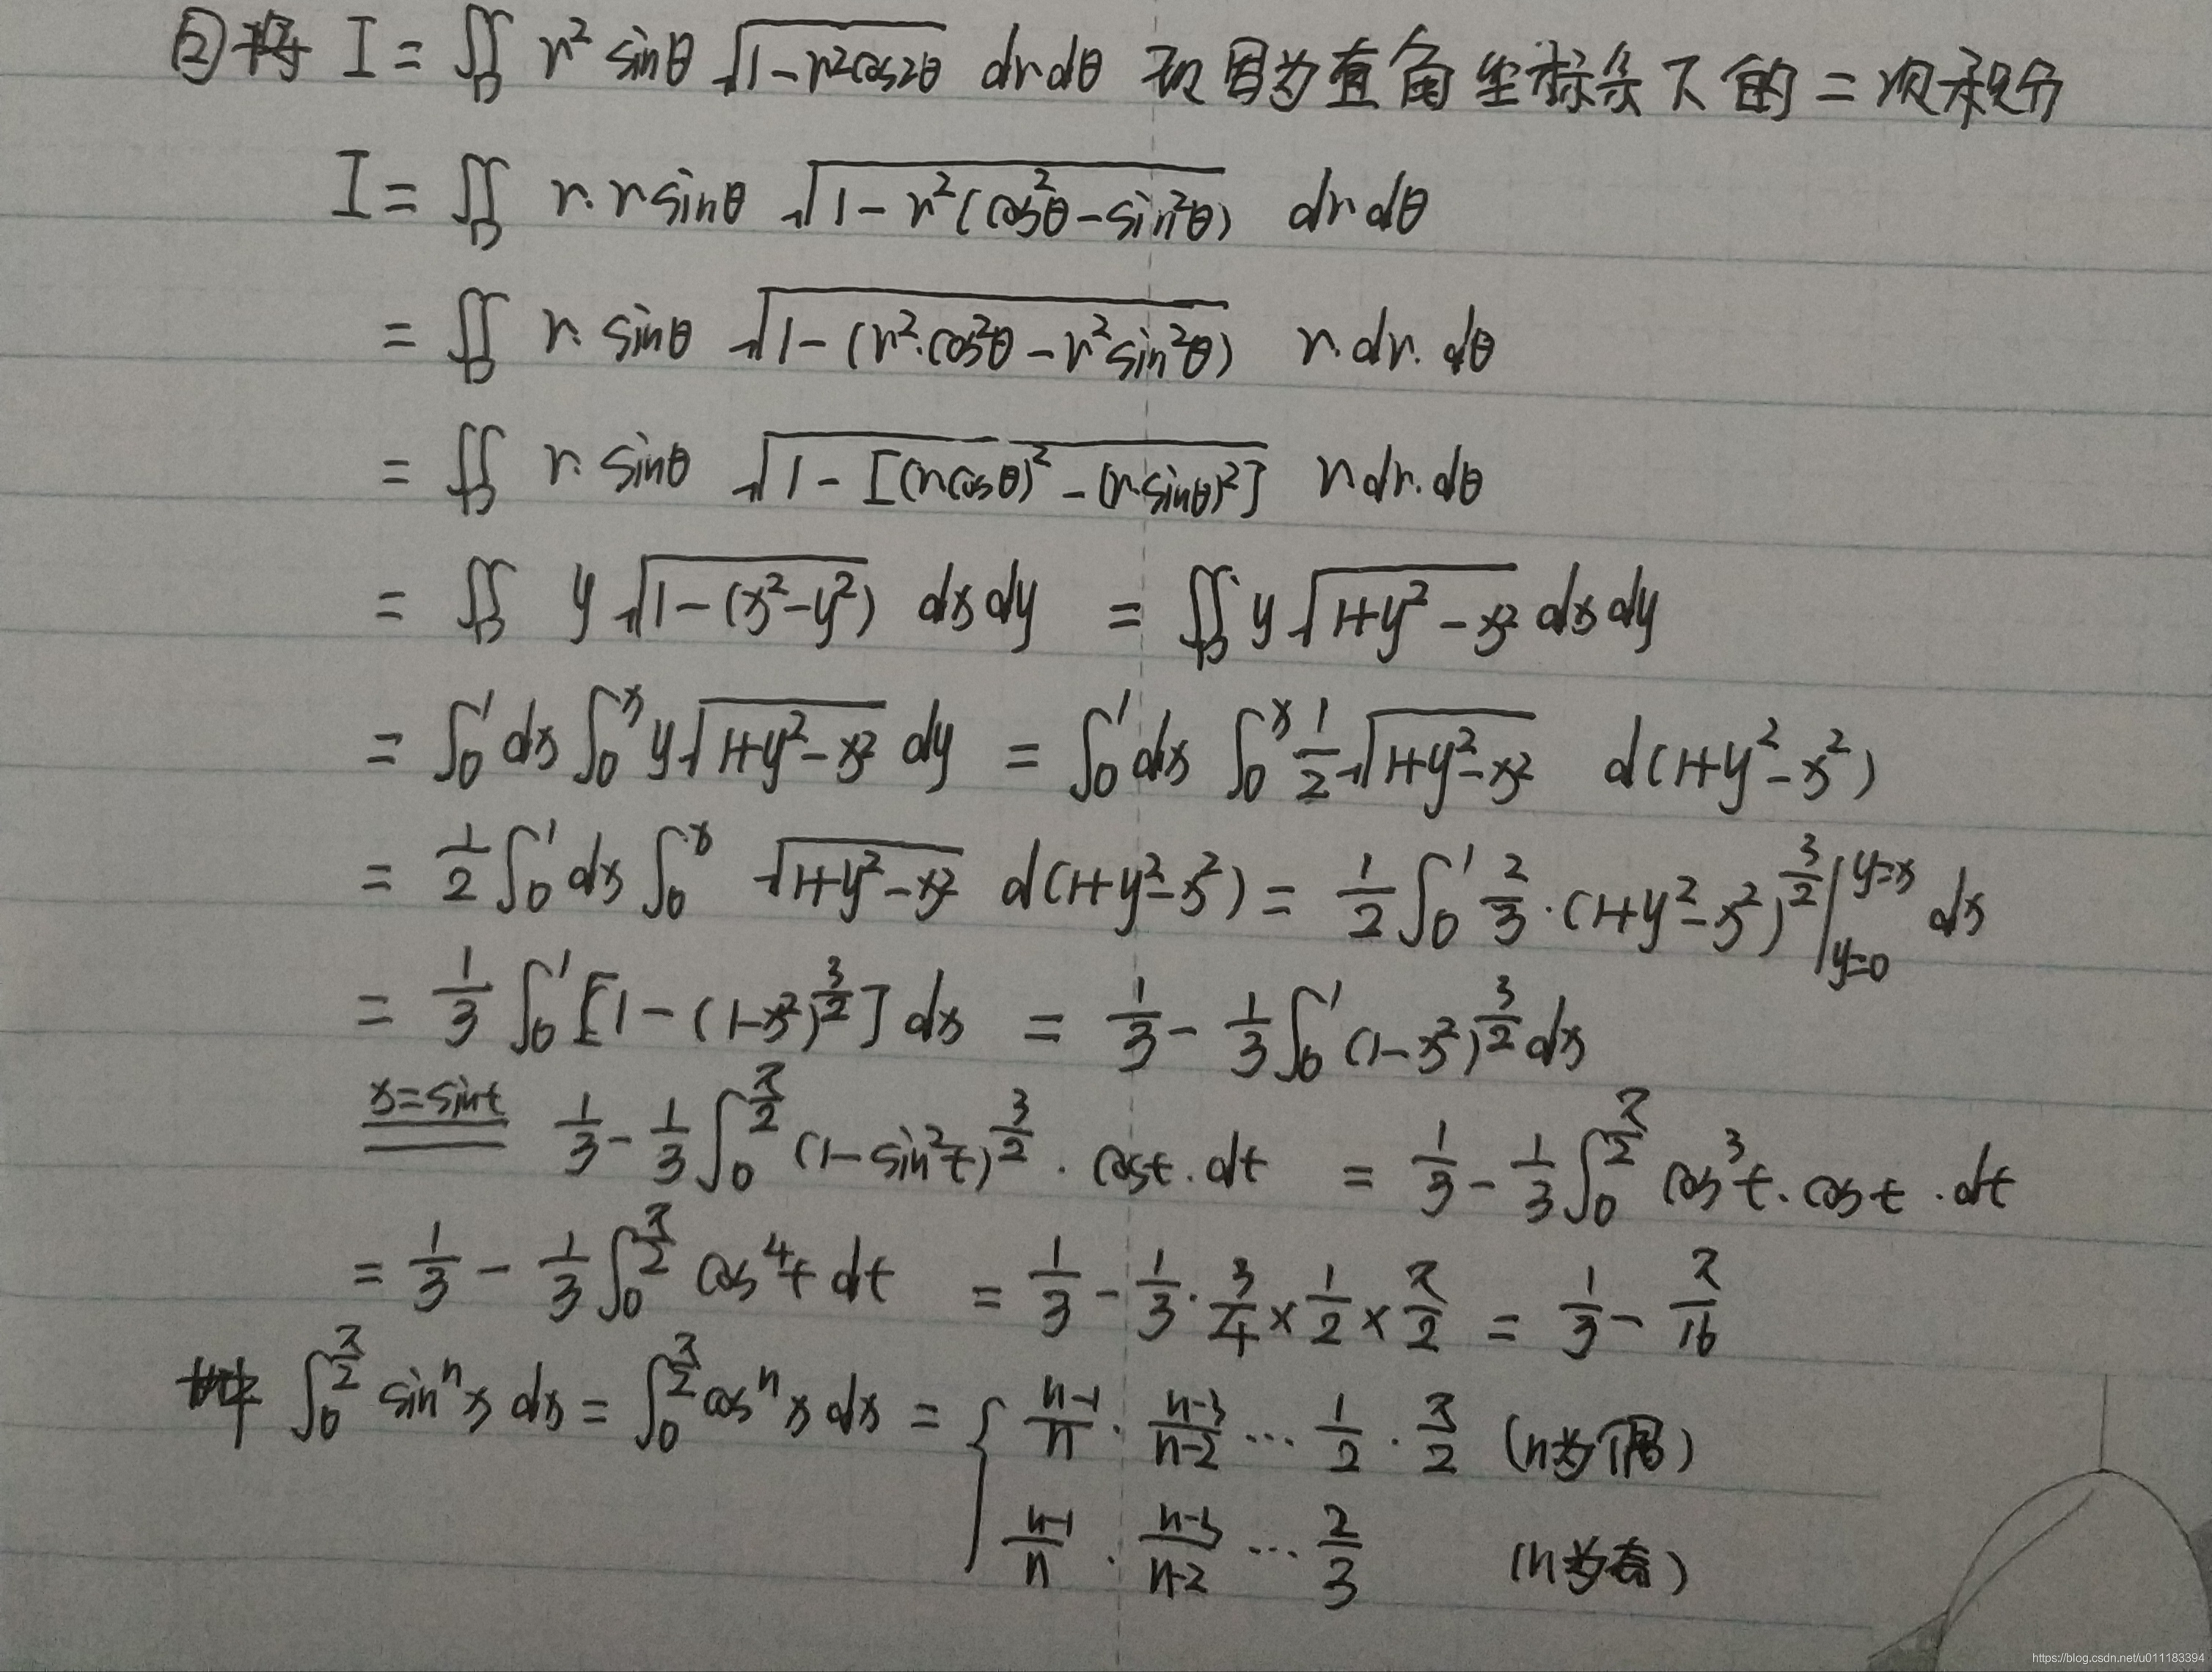 ② 将 I = ∬_D r² sinθ √(1-r²cos2θ) dr dθ 积 为直角坐标系下的二次积分
I = ∬_D r·r sinθ √(1-r²(cos²θ-sin²θ)) dr dθ
= ∬_D r·sinθ √(1-(r²·cos²θ-r²sin²θ)) r·dr·dθ
= ∬_D r·sinθ √(1-[(rcosθ)²-(r·sinθ)²]) r dr·dθ
= ∬_D y √(1-(x²-y²)) dx dy = ∬_D y √(1+y²-x²) dx dy
= ∫₀¹ dx ∫₀ˣ y √(1+y²-x²) dy = ∫₀¹ dx ∫₀ˣ 1/2 √(1+y²-x²) d(1+y²-x²)
= 1/2 ∫₀¹ dx ∫₀ˣ √(1+y²-x²) d(1+y²-x²) = 1/2 ∫₀¹ 2/3·(1+y²-x²)^(3/2) |_(y=0)^(y=x) dx
= 1/3 ∫₀¹ [1-(1-x²)^(3/2)] dx = 1/3 - 1/3 ∫₀¹ (1-x²)^(3/2) dx
x=sint 1/3 - 1/3 ∫₀^(π/2) (1-sin²t)^(3/2)·cost·dt = 1/3 - 1/3 ∫₀^(π/2) cos³t·cost·dt
= 1/3 - 1/3 ∫₀^(π/2) cos⁴t dt = 1/3 - 1/3·3/4×1/2×π/2 = 1/3 - π/16
∫₀^(π/2) sinⁿx dx = ∫₀^(π/2) cosⁿx dx = { (n-1)/n·(n-3)/(n-2)···1/2·π/2 (n为偶)
(n-1)/n·(n-3)/(n-2)···2/3 (n为奇)
https://blog.csdn.net/u011183394